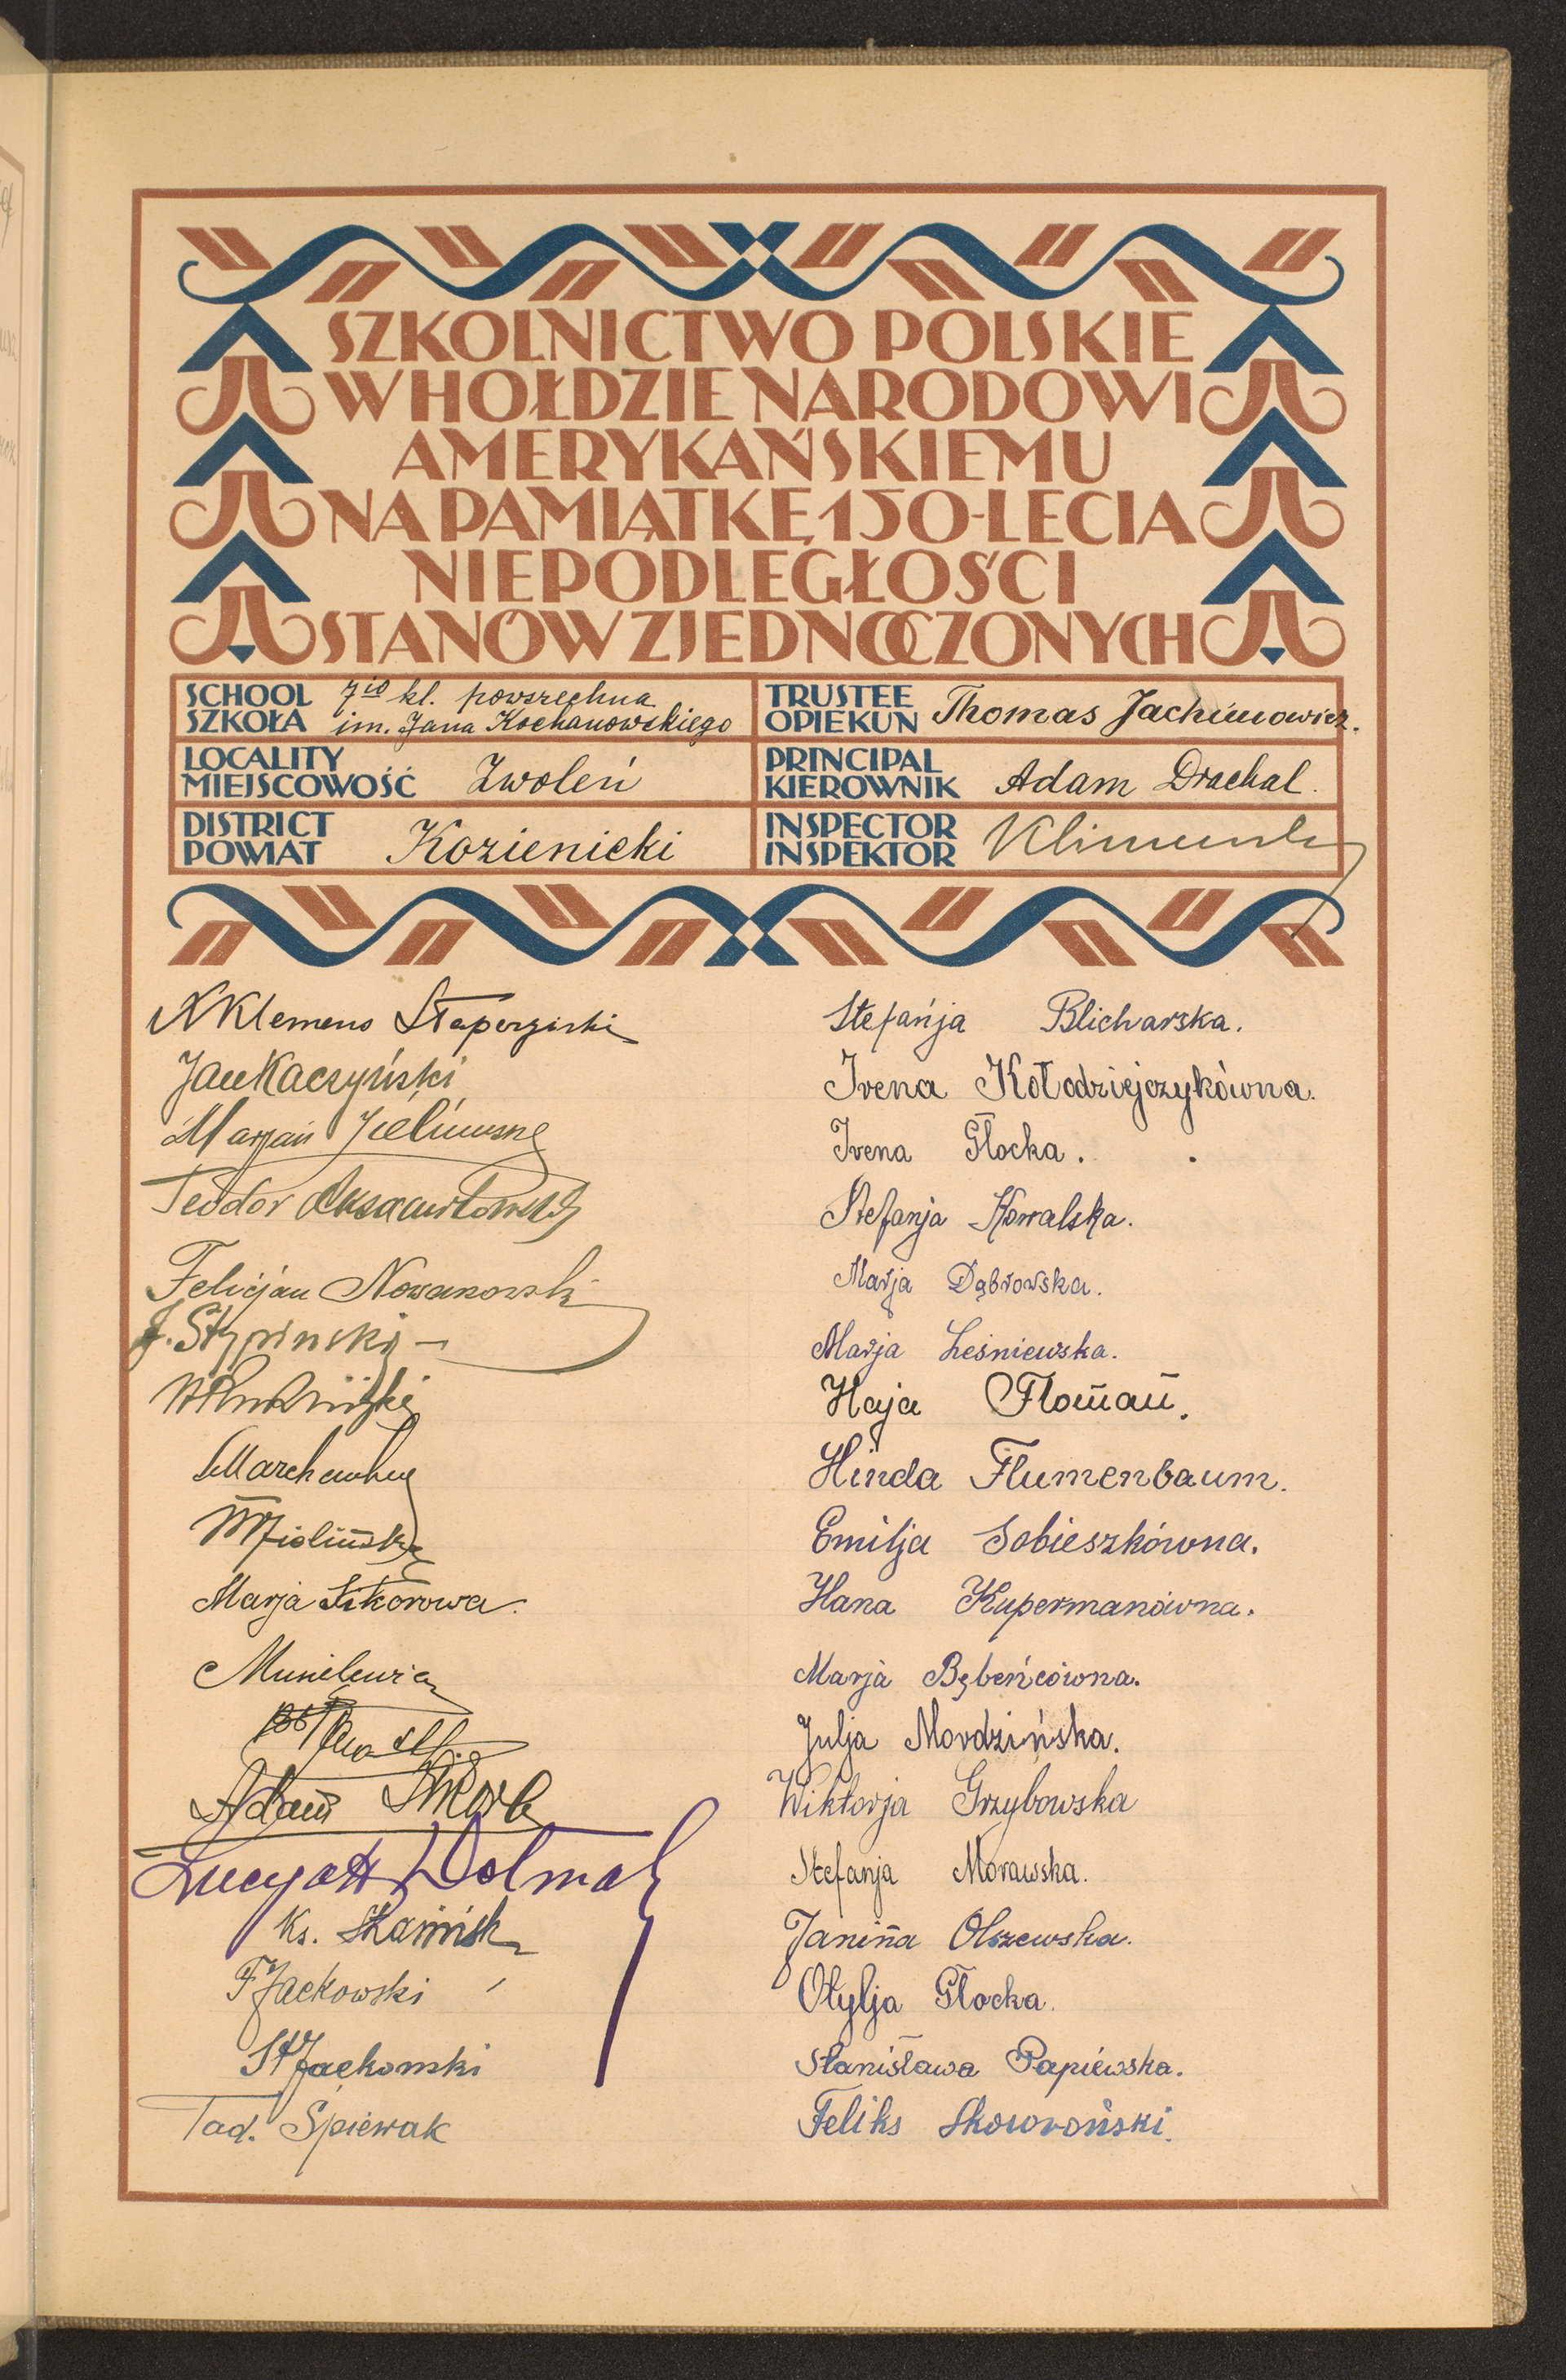 SZKOLNICTWO POLSKIE
W HOŁDZIE NARODOWI
AMERYKAŃSKIEMU
NA PAMIĄTKĘ 150-LECIA
NIEPODLEGŁOŚCI
STANÓW ZJEDNOCZONYCH
SCHOOL
SZKOŁA
7io kl. powszechna
im. Jana Kochanowskiego
TRUSTEE
OPIEKUN
Thomas Jachimowicz.
LOCALITY
MIEJSCOWOŚĆ
Zwoleń
PRINCIPAL
KIEROWNIK
Adam Drachal.
DISTRICT
POWIAT
Kozienicki
INSPECTOR
INSPEKTOR
Klemens
Jan Kaczyński
Marjan
Teodor
Felicjan Nowakowski
J. Stypiński
Marja Sikorowa.
Adam
Ks.
F Jackowski
St Jackowski
Tad. Śpiewak
Stefanja Blicharska.
Irena Kołodziejczykówna.
Irena Głocka.
Stefanja Kowalska.
Marja Dąbrowska.
Marja Leśniewska.
Haja Floman.
Hinda Flumenbaum.
Emilja Sobieszkówna.
Hana Kupermanówna.
Marja Bębeńcówna.
Julja Mordzińska.
Wiktorja Grzybowska
Stefanja Morawska.
Janina Olszewska.
Otylja Głocka.
Stanisława Papiewska.
Feliks Skowroński.